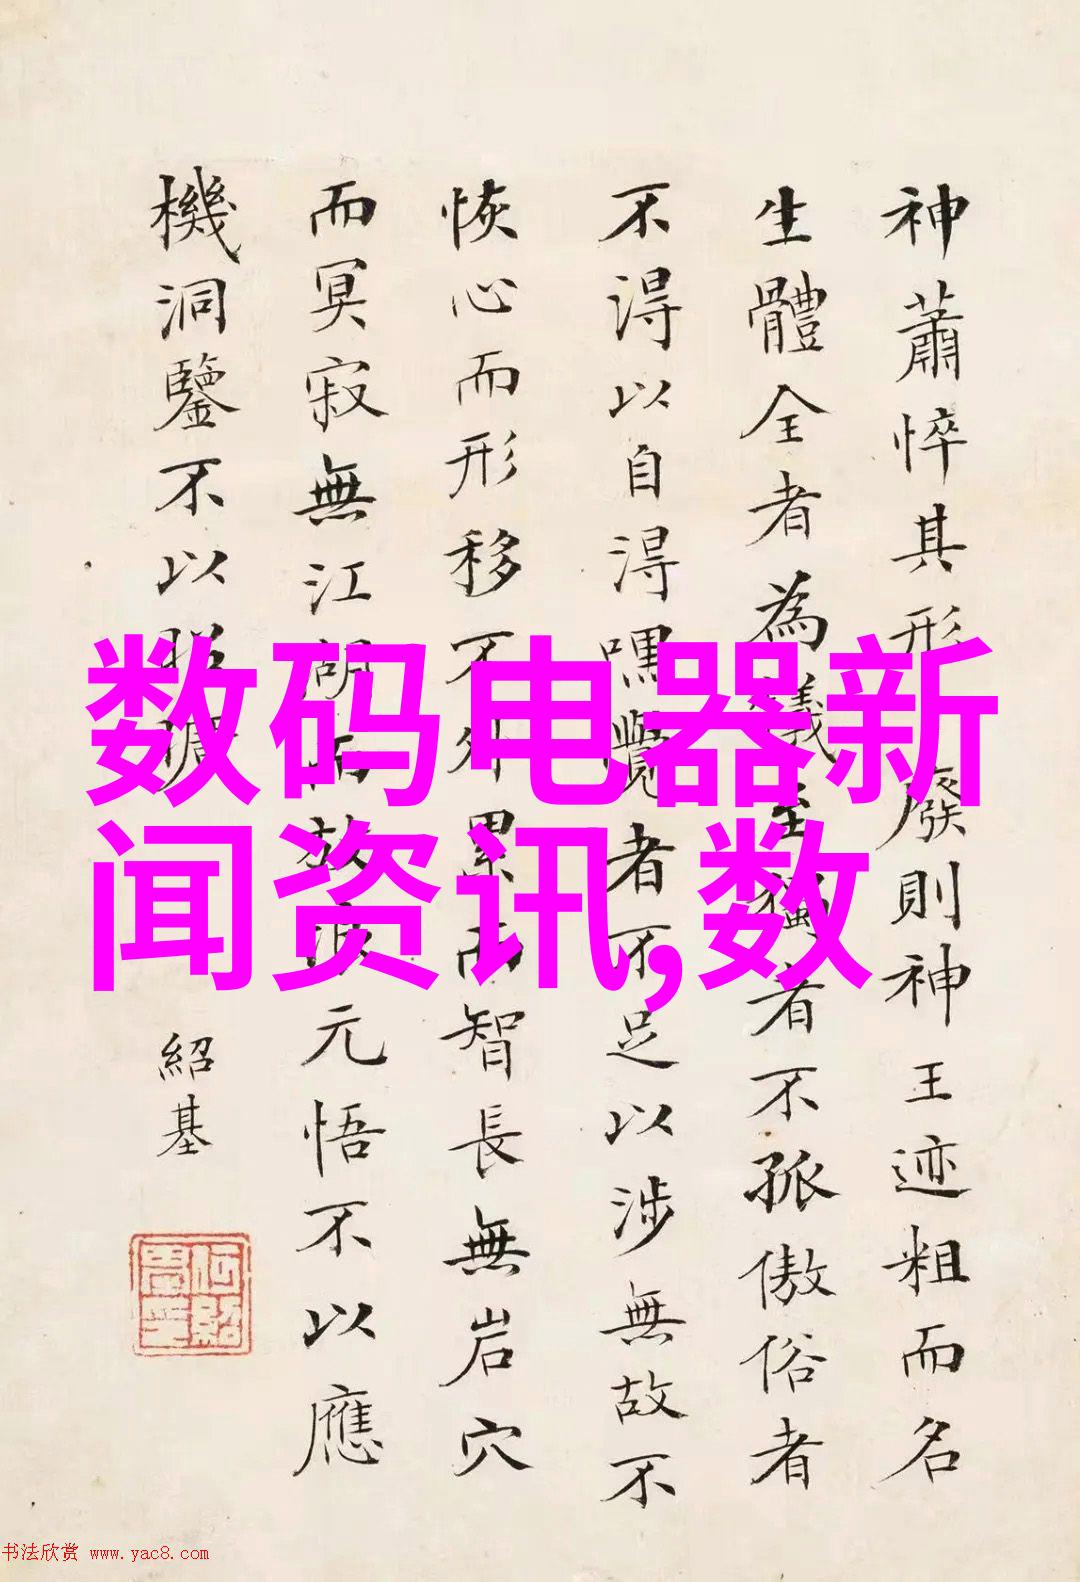 神蕭悴其形廢則神王迹粗而名
生體全者為犧至獨者不孤傲俗者
不得以自得嘿覺者不足以涉無故不
恢心而形移不外累而智長無岩穴
而冥寂無江湖而放浪元悟不以應
機洞鑒不以
紹基
数码电器新
闻资讯,数
书法欣赏 www.yac8.com